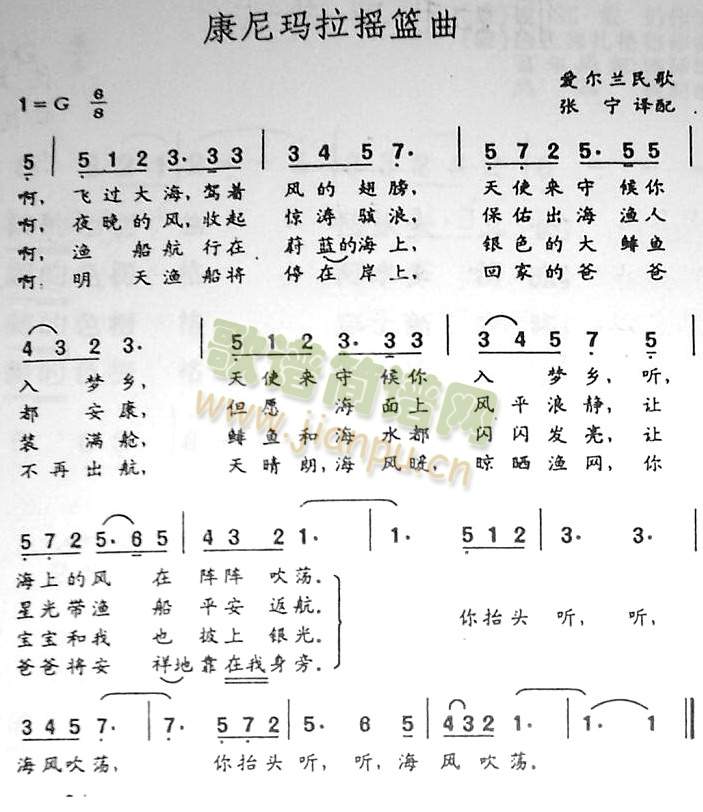 康尼玛拉摇篮曲
爱尔兰民歌
1=G 6/8
张宁译配
5 | 5 1 2 3· 3 3 | 3 4 5 7· | 5 7 2 5· 5 5 |
啊, 飞过大海,驾着 风的翅膀, 天使来守候你
啊, 夜晚的风,收起 惊涛骇浪, 保佑出海渔人
啊, 渔船航行在 蔚蓝的海上, 银色的大鲱鱼
啊, 明天渔船将 停在岸上, 回家的爸爸
4 3 2 3· | 5 1 2 3· 3 3 | 3 4 5 7 5 |
入梦乡, 天使来守候你 入梦乡,听,
都安康, 但愿海面上 风平浪静,让
装满舱, 鲱鱼和海水都 闪闪发亮,让
不再出航, 天晴朗,海风暖, 晾晒渔网,你
歌谱简谱网
www.jianpu.cn
5 7 2 5· 6 5 | 4 3 2 1· | 1· | 5 1 2 | 3· 3· |
海上的风在阵阵吹荡。
星光带渔船平安返航。
你抬头听, 听,
宝宝和我也披上银光。
爸爸将安祥地靠在我身旁。
3 4 5 7· | 7· 5 7 2 | 5· 6 5 | 4 3 2 1· | 1· 1 ‖
海风吹荡, 你抬头听,听,海风吹荡。